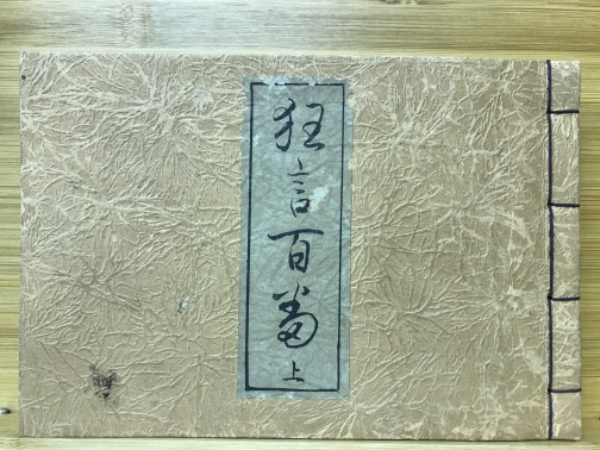 狂言百番
上